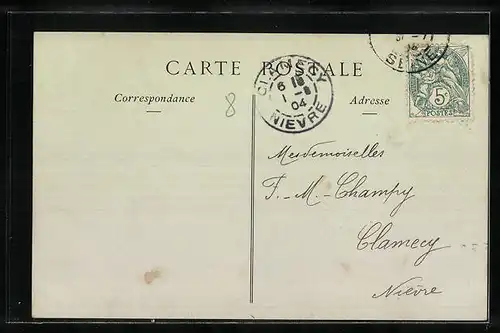 CARTE POSTALE
Correspondance
Adresse
8
CLAMECY
6 18
1 -8
04
NIEVRE
SEINE
5
POSTES
Mesdemoiselles
F.-M.-Champy
Clamecy
Nièvre